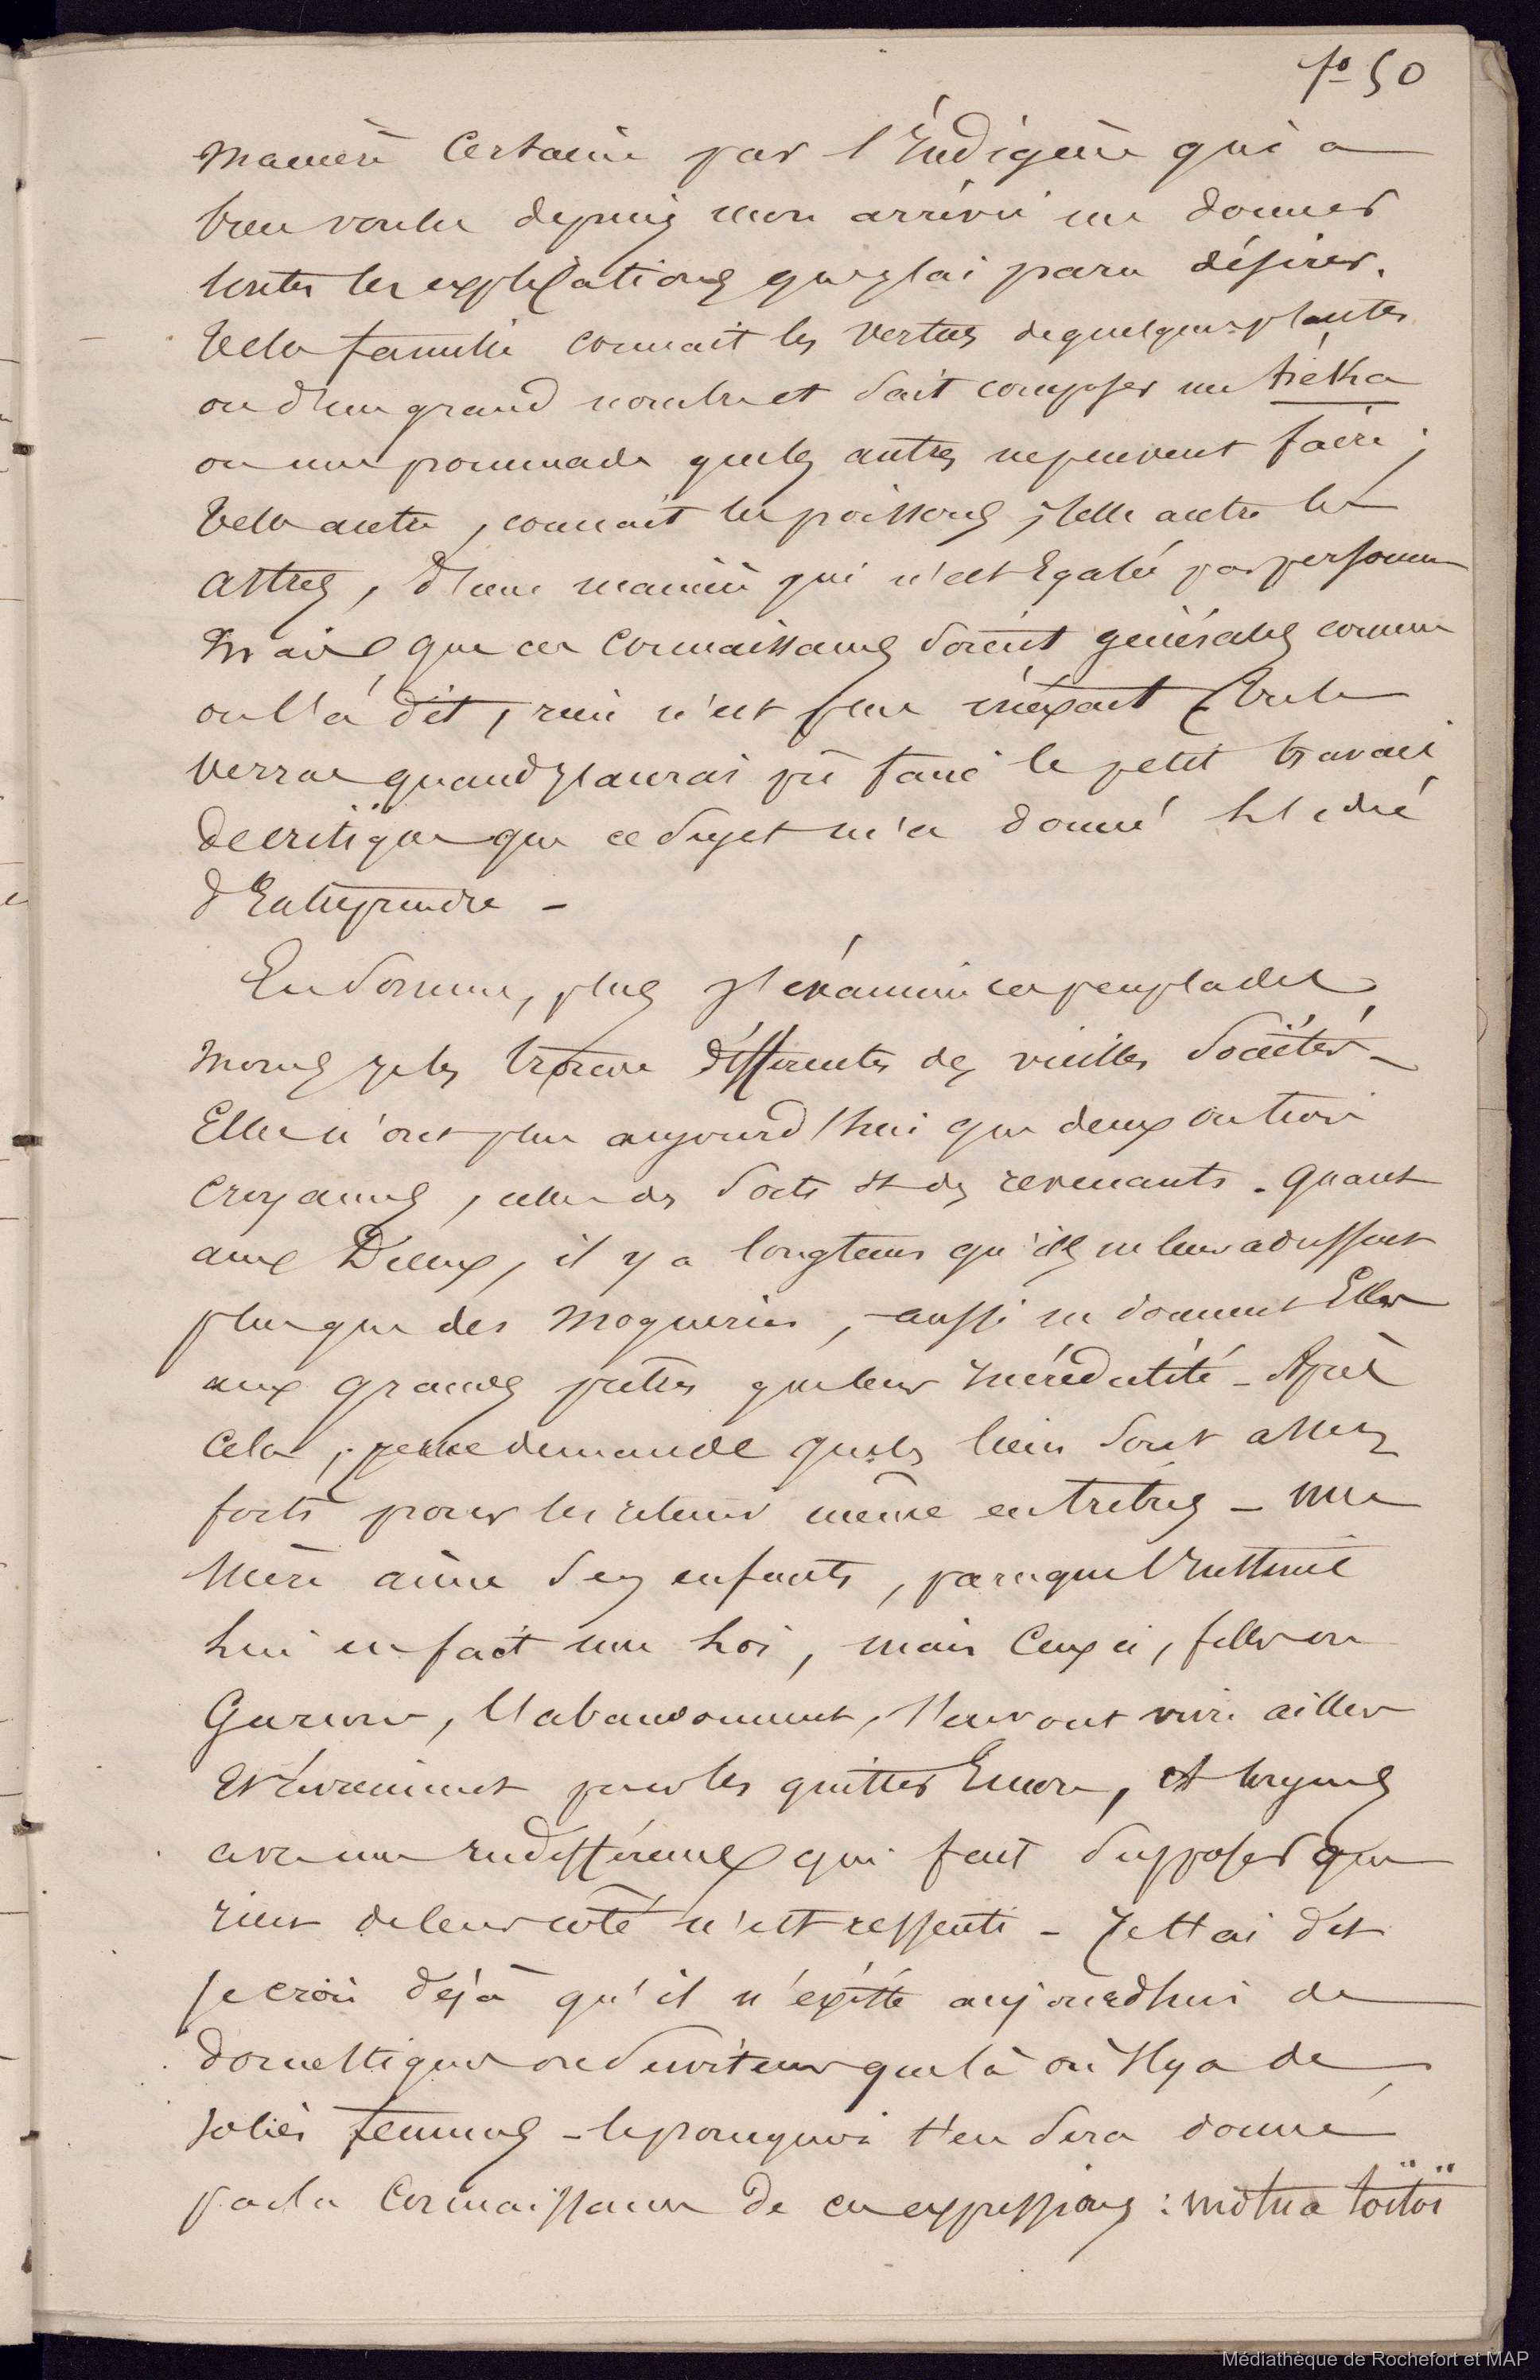 fo 50
manière certaine par l'Indigène qui a
bien voulu depuis mon arrivée me donner
toutes les explications que j'ai paru désirer.
Telle famille connait les vertus de quelques plantes
ou d'un grand nombre et sait composer un
ou une pommade que les autres ne peuvent faire ;
telle autre, connait les poissons, telle autre les
astres, d'une manière qui n'est égalée par personne
Mais que ces connaissances soient générales comme
on l'a dit, rien n'est plus inéxact. Tu le
verras quand j'aurai pû faire le petit travail
de critique que ce sujet m'a donné l'idée
d'Entreprendre -
En somme, plus j'éxamine ces peuplades,
moins je les trouve différentes des vieilles Sociétés -
Elles n'ont plus aujourd'hui que deux ou trois
croyances, celles des Sorts et des revenants. Quant
aux Dieux, il y a longtems qu'ils ne leur adressent
plus que des moqueries, - aussi ne donnent Elles
aux grands prêtres que leur Incrédulité - Après
cela, je me demande quels liens sont assez
forts pour les retenir même en tribus - Une
Mère aime ses enfants, parceque l'Instinct
lui en fait une loi, mais ceux ci, filles ou
Garçons, l'abandonnent, s'en vont vivre ailleurs
Et reviennent pour les quitter Encore, et toujours
avec une indifférence qui fait supposer que
rien de leur coté n'est ressenti - Je t'ai dit
je crois déjà qu'il n'éxiste aujourdhui de
domestiques ou serviteurs que là où il y a de
jolies femmes - le pourquoi t'en sera donné
par la connaissance de ces expressions : motua toïtoï
Médiathèque de Rochefort et MAP